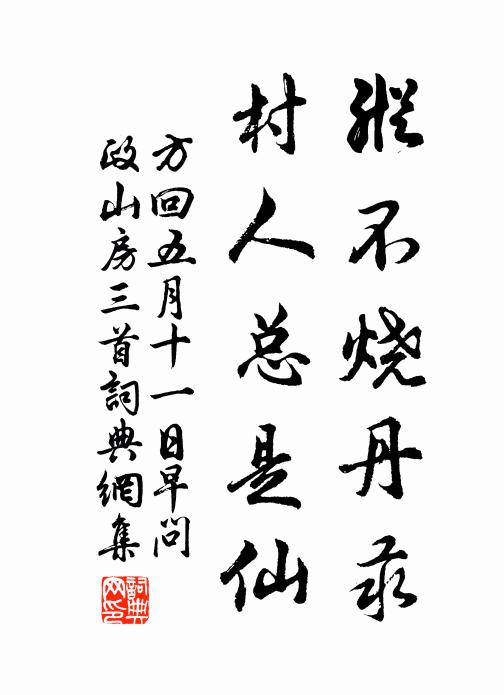 縱不烧丹藥
村人总是仙
方回五月十一日早問
政山房三首詞典網集
詞典網印